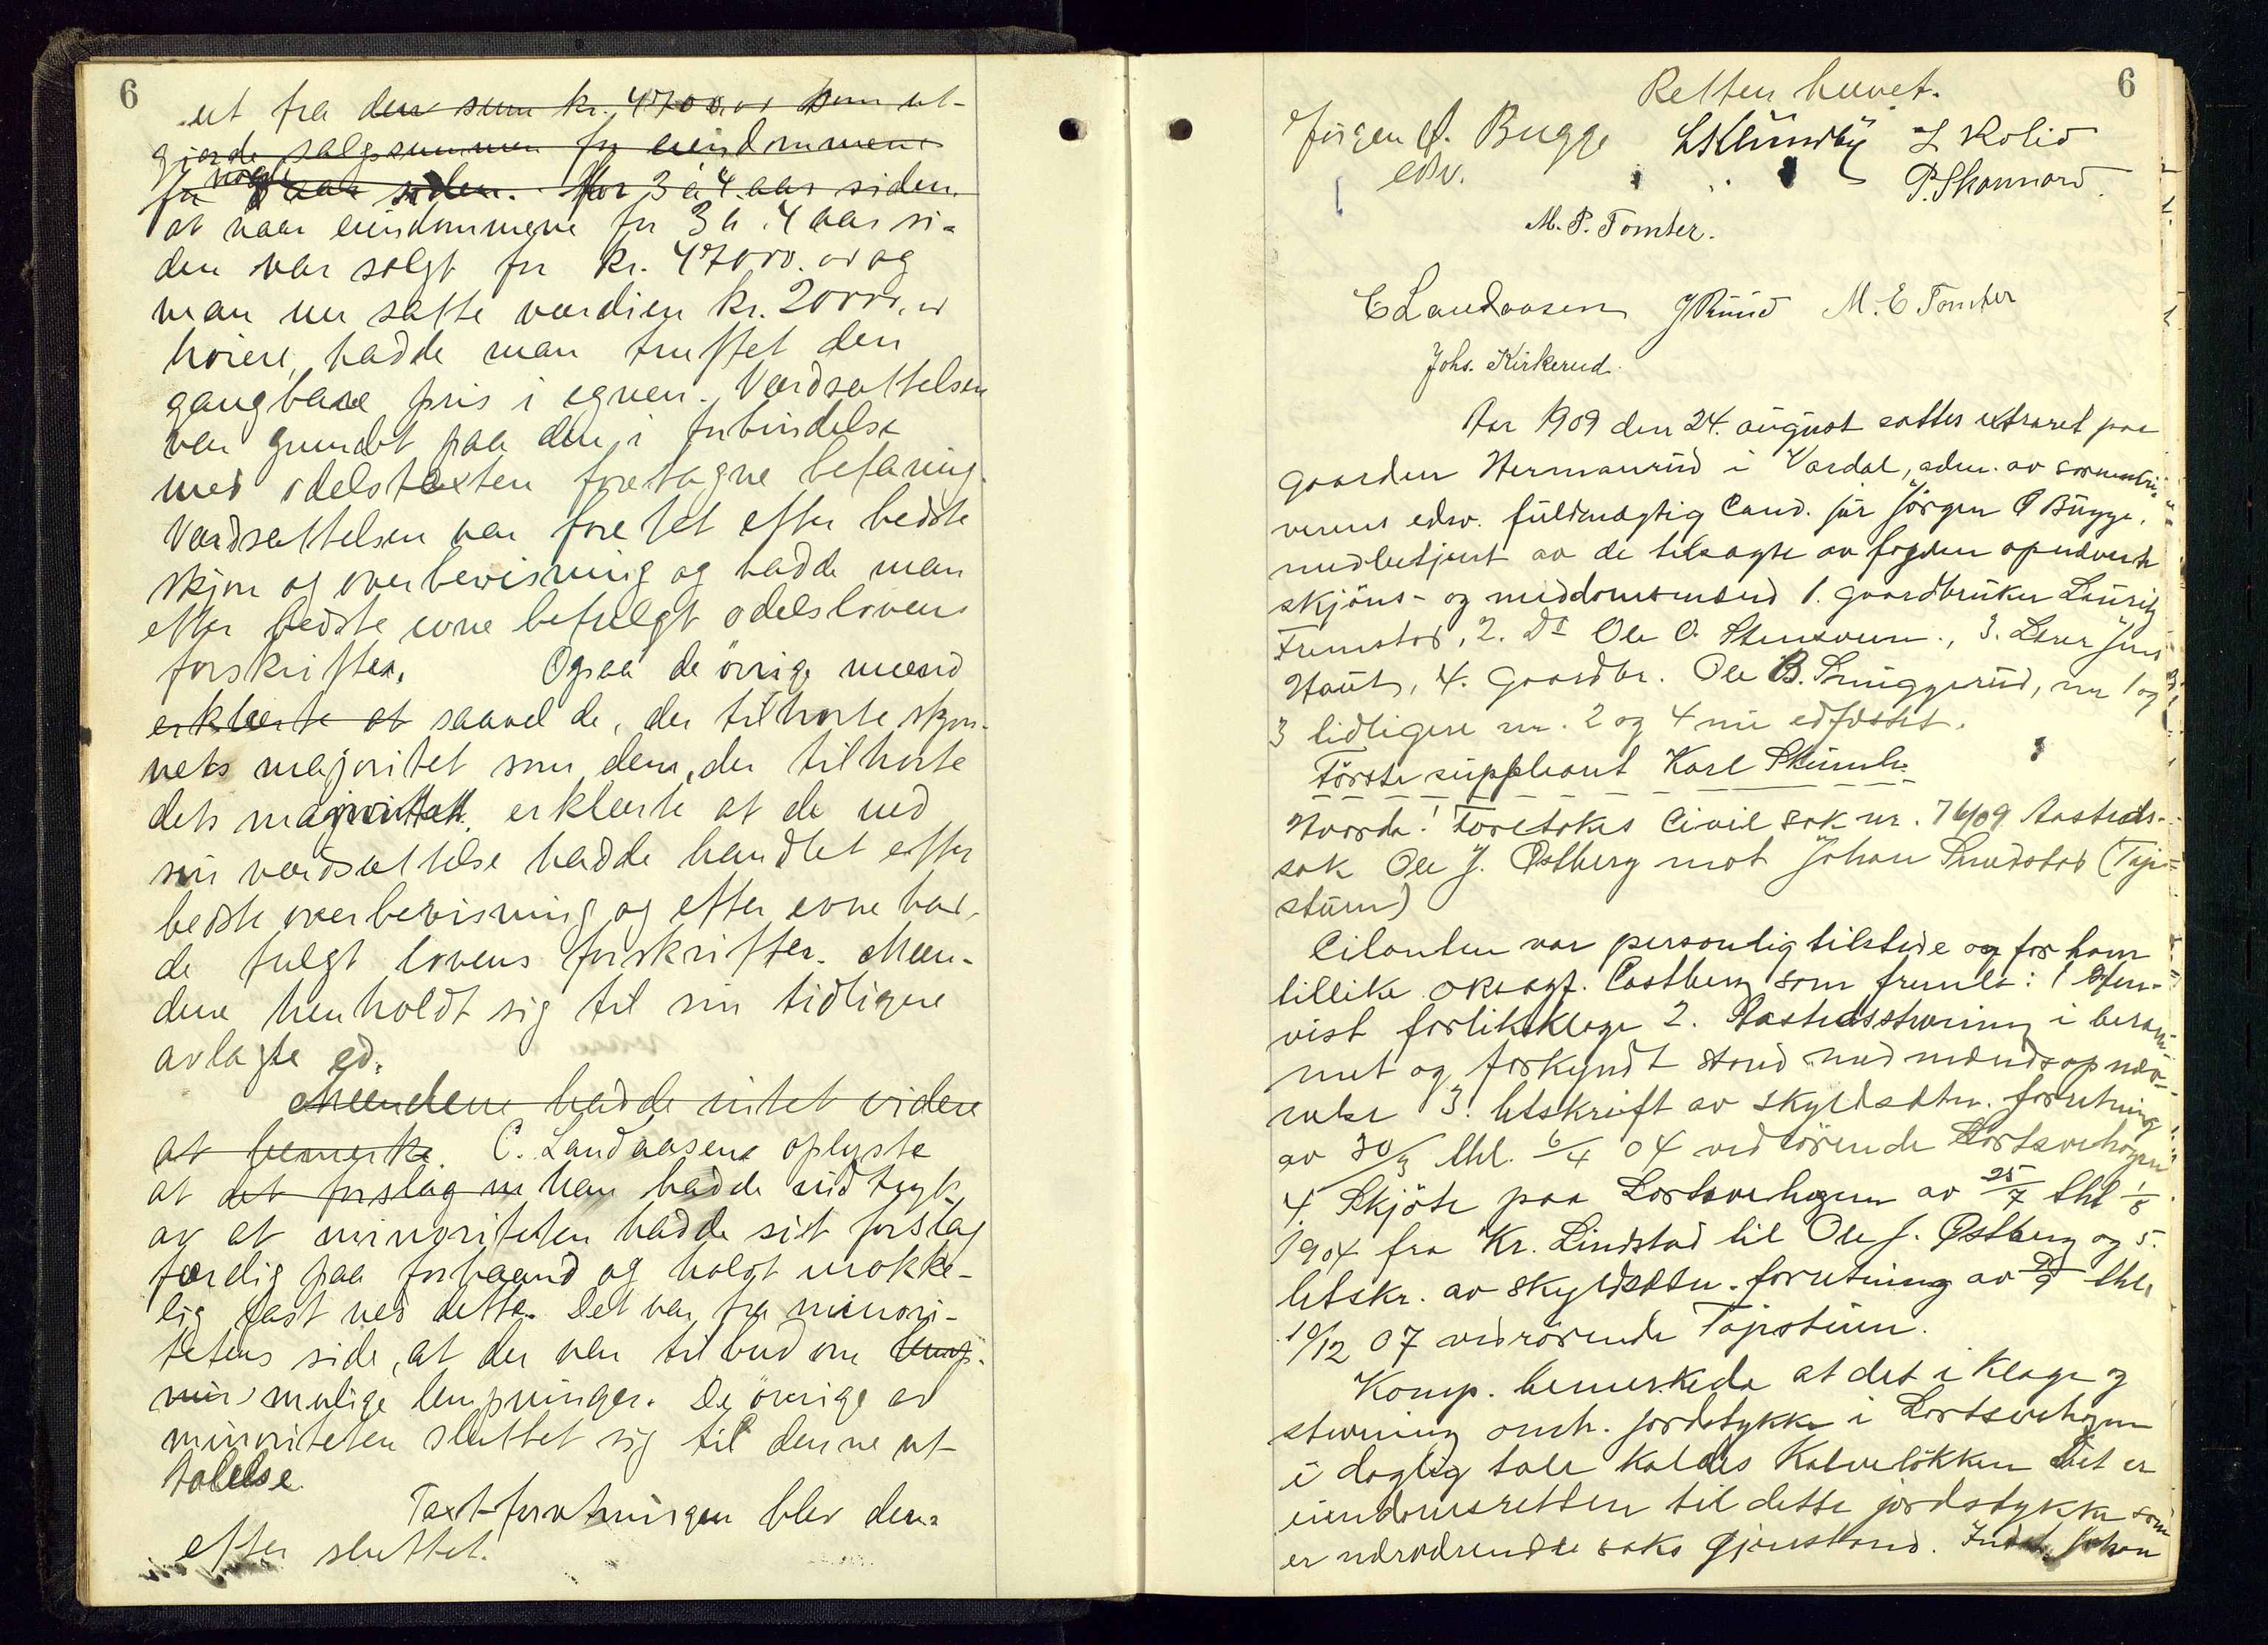 6
ut fra den sum kr. 47000.00 som ut-
gjorde salgssummen for eiendommene
for nogle aar siden. For 3 à 4 aar siden
at naar eiendommene for 3 à 4 aar si-
den var solgt for kr. 47000.00 og
man nu satte værdien kr. 20000.00
høiere, hadde man truffet den
gangbare pris i egnen. Værdsættelsen
var grundet paa den i forbindelse
med odelstaxten foretagne befaring.
Værdsættelsen var foretat efter bedste
skjøn og overbevisning og hadde man
efter bedste evne befulgt odelslovens
forskrifter. Ogsaa de øvrige mænd
erklærte at saavel de, der tilhørte skjøn-
nets majoritet som dem, der tilhørte
dets erklærte at de ved
sin værdsættelse hadde handlet efter
bedste overbevisning og efter evne had-
de fulgt lovens forskrifter. Mæn-
dene henholdt sig til sin tidligere
avlagte ed.
Mændene hadde intet videre
at bemerke. C. Landaasen oplyste
at det forslag m han hadde indtryk
av at minoriteten hadde sit forslag
færdig paa forhaand og holdt urokke-
lig fast ved dette. Det var fra minori-
tetens side, at der var tilbud om
mulige lempninger. De øvrige av
minoriteten sluttet sig til denne ut-
talelse
Taxtforretningen blev der-
efter sluttet.
6
Retten hævet.
Jørgen Ø. Bugge L Klundby L Kolid
edsv. P. Skonnord.
M. P. Tomter.
C Landaasen J Ruud M. E Tomter
Johs. Kirkerud.
Aar 1909 den 24. august sattes extraret paa
gaarden Hermanrud i Vardal, adm. av sorenskri-
verens edsv. fuldmægtig Cand. jur Jörgen Ø Bugge,
medbetjent av de tilsagte av fogden opnævnte
skjöns- og meddomsmænd 1. gaardbruker Lauritz
Fremstad, 2. Do Ole O. Stensveen., 3. Jens
4. Gaardbr. Ole B. Snuggerud, nr 1 og
3 tidligere nr. 2 og 4 nu edfæstet.
Förste suppleant Karl
Hvorda! Foretokes Civil sak nr. 76/09 Aasteds-
sak Ole J. Østberg mot Johan Smedstad (Tajs-
stuen)
Citanten var personlig tilstede og for ham
tillike oksagf. Castberg som fremla: 1 Hen-
vist forliksklage 2. Aastedsstevning i beram-
met og forkyndt stand med mændsopnæv-
nelse 3. Utskrift av skyldsdtn. forretning
av 30/3 thl. 6/4 04 vedrörende Lortsvehagen
4 Skjöte paa Lortsvehagen av 25/7 thl 1/8
1904 fra Kr. Lindstad til Ole J. Østberg og 5.
Utskr. av skyldsdtn. forretning av /9 thl.
10/12 07 vedrörende Tajsstuen.
Komp. bemerkede at det i klage og
stevning omh. jordstykke i Lortsvehagen
i daglig tale kaldes Kalvelökken Det er
eiendomsretten til dette jordstykke som
er nærværende saks gjenstand. Indst. Johan